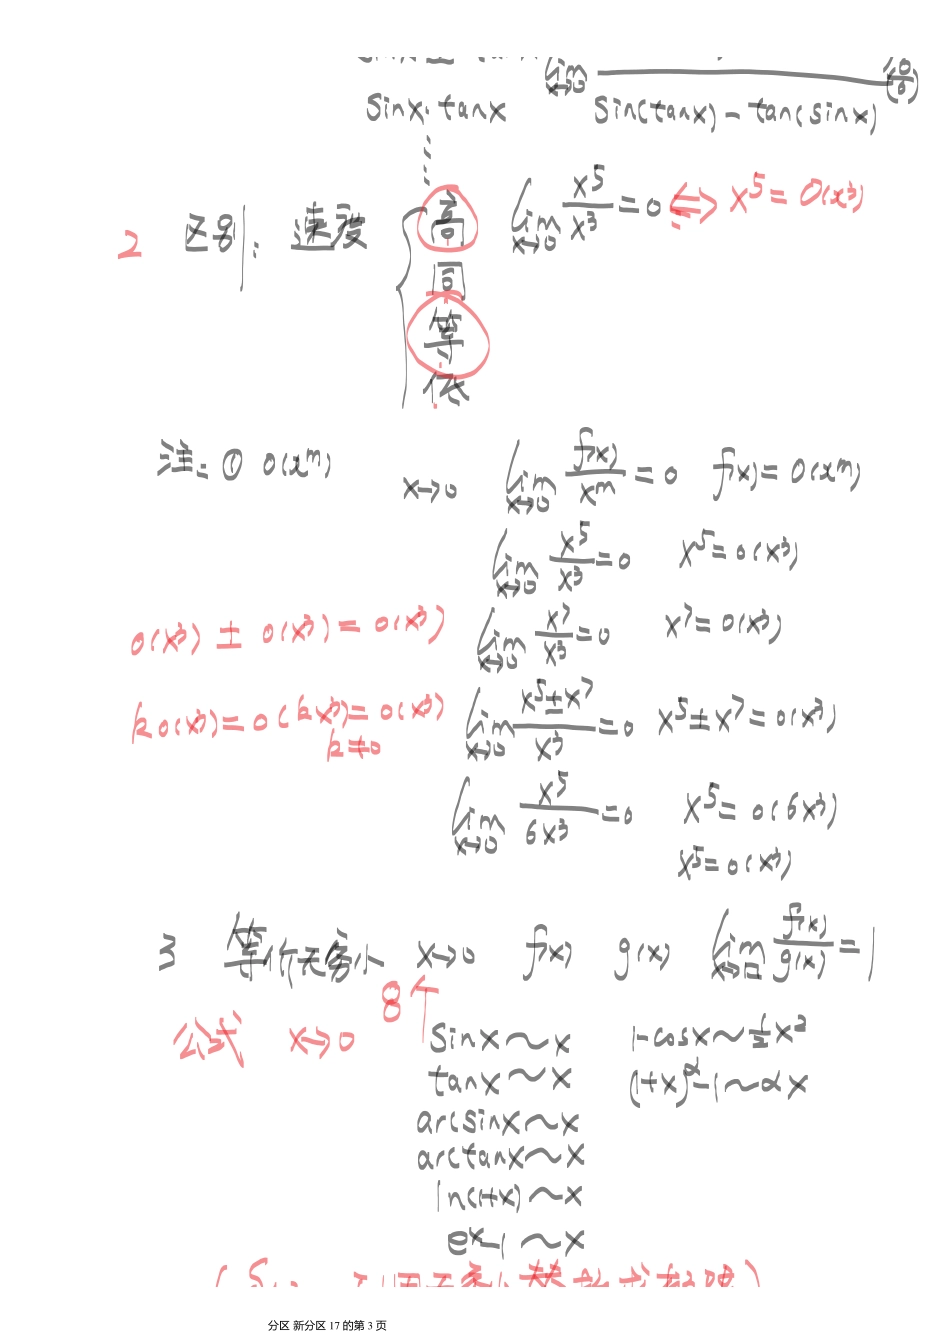 lim x→0 (0/0)
sinx·tanx sin(tanx)-tan(sinx)
⋮
2 区别: 速度 { 高 lim x→0 x⁵/x³ =0 ⇔ x⁵=0(x³)
同
等
低
注: ① 0(xᵐ) x→0 lim x→0 f(x)/xᵐ =0 f(x)=0(xᵐ)
lim x→0 x⁵/x³ =0 x⁵=0(x³)
0(x³) ± 0(x³) = 0(x³) lim x→0 x⁷/x³ =0 x⁷=0(x³)
k0(x³)=0(kx³)=0(x³) lim x→0 x⁵±x⁷/x³ =0 x⁵±x⁷=0(x³)
k≠0
lim x→0 x⁵/6x³ =0 x⁵=0(6x³)
x⁵=0(x³)
3 等价无穷小 x→0 f(x) g(x) lim x→□ f(x)/g(x) =1
公式 x→0 8个
sinx~x 1-cosx~½x²
tanx~x (1+x)^α-1~αx
arcsinx~x
arctanx~x
ln(1+x)~x
eˣ-1~x
分区 新分区 17 的第 3 页